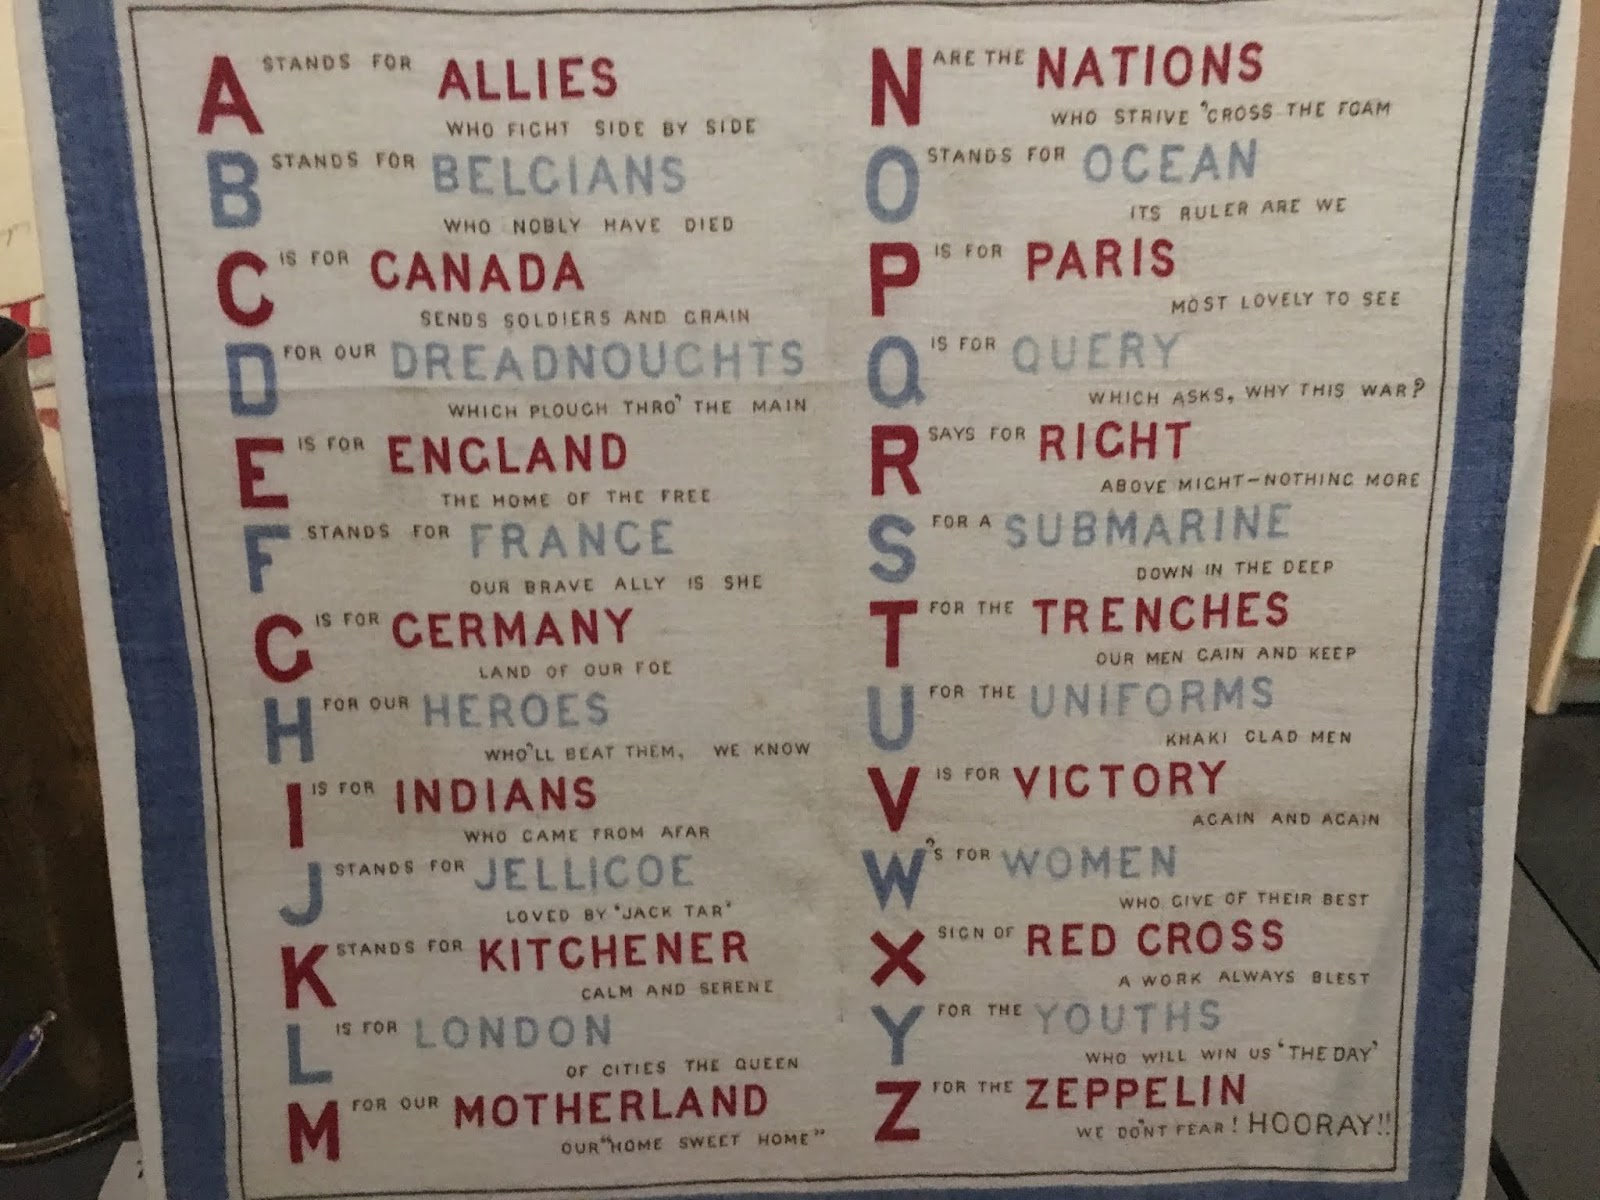 A STANDS FOR ALLIES
WHO FIGHT SIDE BY SIDE
B STANDS FOR BELGIANS
WHO NOBLY HAVE DIED
C IS FOR CANADA
SENDS SOLDIERS AND GRAIN
D FOR OUR DREADNOUGHTS
WHICH PLOUGH THRO' THE MAIN
E IS FOR ENGLAND
THE HOME OF THE FREE
F STANDS FOR FRANCE
OUR BRAVE ALLY IS SHE
G IS FOR GERMANY
LAND OF OUR FOE
H FOR OUR HEROES
WHO'LL BEAT THEM, WE KNOW
I IS FOR INDIANS
WHO CAME FROM AFAR
J STANDS FOR JELLICOE
LOVED BY "JACK TAR"
K STANDS FOR KITCHENER
CALM AND SERENE
L IS FOR LONDON
OF CITIES THE QUEEN
M FOR OUR MOTHERLAND
OUR "HOME SWEET HOME"
N ARE THE NATIONS
WHO STRIVE 'CROSS THE FOAM
O STANDS FOR OCEAN
ITS RULER ARE WE
P IS FOR PARIS
MOST LOVELY TO SEE
Q IS FOR QUERY
WHICH ASKS, WHY THIS WAR?
R SAYS FOR RIGHT
ABOVE MIGHT—NOTHING MORE
S FOR A SUBMARINE
DOWN IN THE DEEP
T FOR THE TRENCHES
OUR MEN GAIN AND KEEP
U FOR THE UNIFORMS
KHAKI CLAD MEN
V IS FOR VICTORY
AGAIN AND AGAIN
W'S FOR WOMEN
WHO GIVE OF THEIR BEST
X SIGN OF RED CROSS
A WORK ALWAYS BLEST
Y FOR THE YOUTHS
WHO WILL WIN US 'THE DAY'
Z FOR THE ZEPPELIN
WE DO'NT FEAR! HOORAY!!